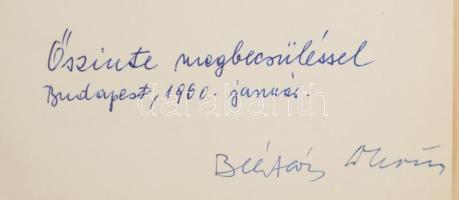 Őszinte megbecsüléssel
Budapest, 1960. január.
darabanth